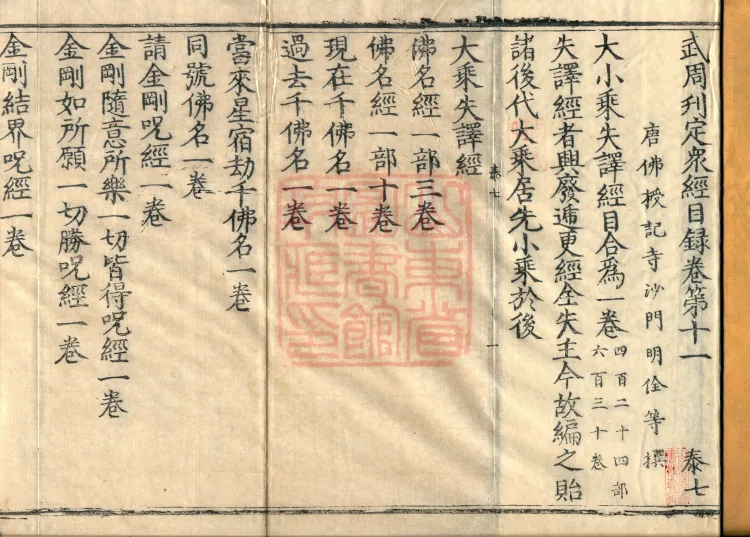 武周刋定衆經目録卷第十一 泰七
唐佛授記寺沙門明佺等撰
大小乘失譯經目合爲一卷 四百二十四部
六百三十卷
失譯經者興廢遞更經全失主今故編之貽
諸後代大乘居先小乘於後
泰七 一
大乘失譯經
佛名經一部三卷
佛名經一部十卷
現在千佛名一卷
過去千佛名一卷
當來星宿劫千佛名一卷
同號佛名一卷
請金剛呪經一卷
金剛隨意所樂一切皆得呪經一卷
金剛如所願一切勝呪經一卷
金剛結界呪經一卷